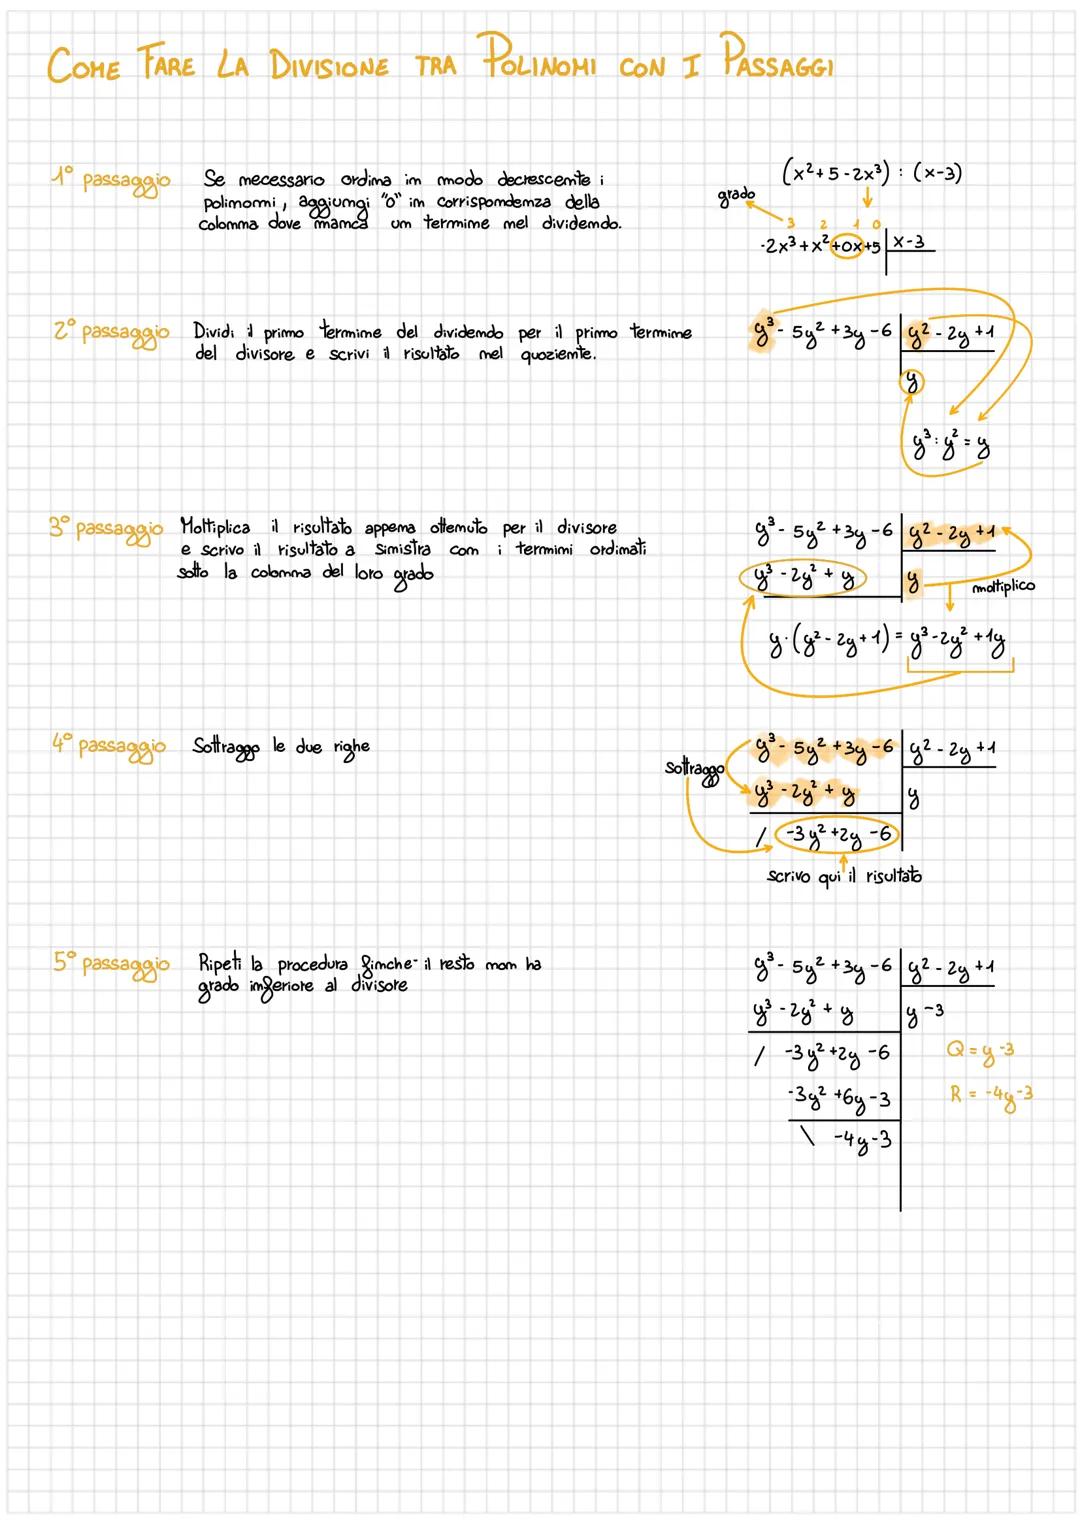 COME FARE LA DIVISIONE TRA POLINOMI CON I PASSAGGI
1° passaggio
Se necessario ordina in modo decrescente i
polinomni, aggiungi "0" in corrispondenza della
colonna dove manca un termine nel dividendo.
(x²+5-2x³) : (x-3)
grado
3 2 1 0
-2x³+x²+0x+5 x-3
2° passaggio
Dividi il primo termine del dividendo per il primo termine
del divisore e scrivi il risultato nel quoziente.
y³-5y²+3y-6 y²-2y+1
y
y³:y²=y
3° passaggio
Moltiplica il risultato appena ottenuto per il divisore
e scrivo il risultato a sinistra con i termini ordinati
sotto la colonna del loro grado
y³-5y²+3y-6 y²-2y+1
y³-2y²+y y
moltiplico
y·(y²-2y+1)=y³-2y²+1y
4° passaggio
Sottraggo le due righe
y³-5y²+3y-6 y²-2y+1
sottraggo
y³-2y²+y y
/ -3y²+2y-6
scrivo qui il risultato
5° passaggio
Ripeti la procedura finche- il resto non ha
grado inferiore al divisore
y³-5y²+3y-6 y²-2y+1
y³-2y²+y y-3
/ -3y²+2y-6 Q=y-3
-3y²+6y-3 R=-4y-3
\ -4y-3